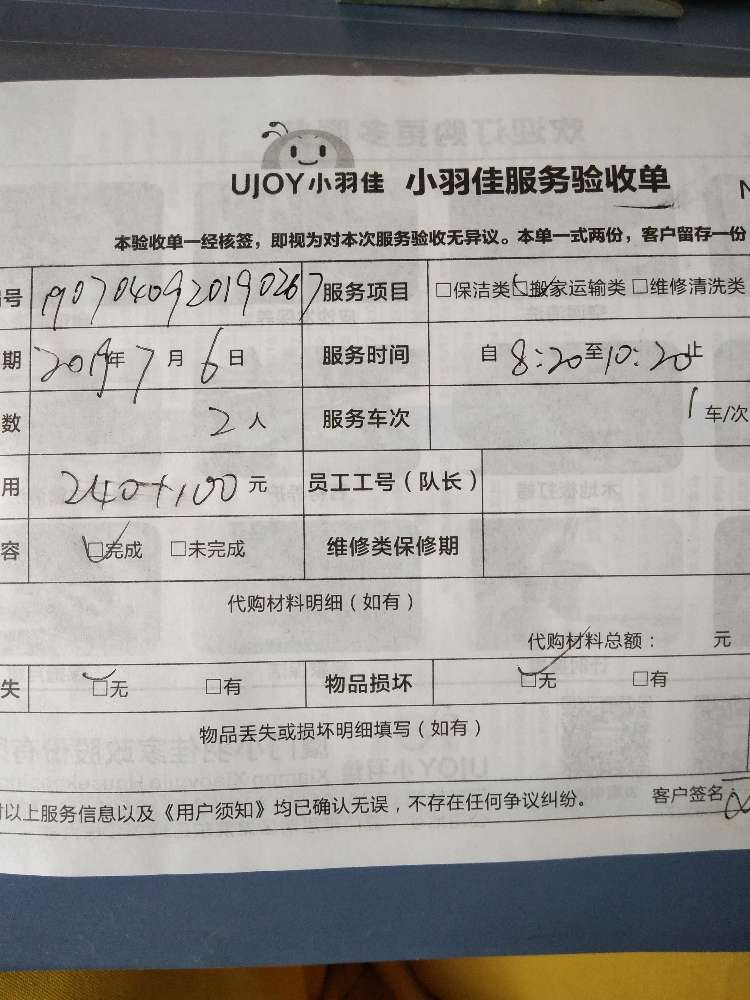 UJOY小羽佳 小羽佳服务验收单
本验收单一经核签，即视为对本次服务验收无异议。本单一式两份，客户留存一份
号 1907040920190267 服务项目 □保洁类 □搬家运输类 □维修清洗类
期 2019年7月6日 服务时间 自8:20至10:20止
数 2人 服务车次 1车/次
用 240+100元 员工工号（队长）
容 □完成 □未完成 维修类保修期
代购材料明细（如有）
代购材料总额： 元
失 □无 □有 物品损坏 □无 □有
物品丢失或损坏明细填写（如有）
以上服务信息以及《用户须知》均已确认无误，不存在任何争议纠纷。 客户签名